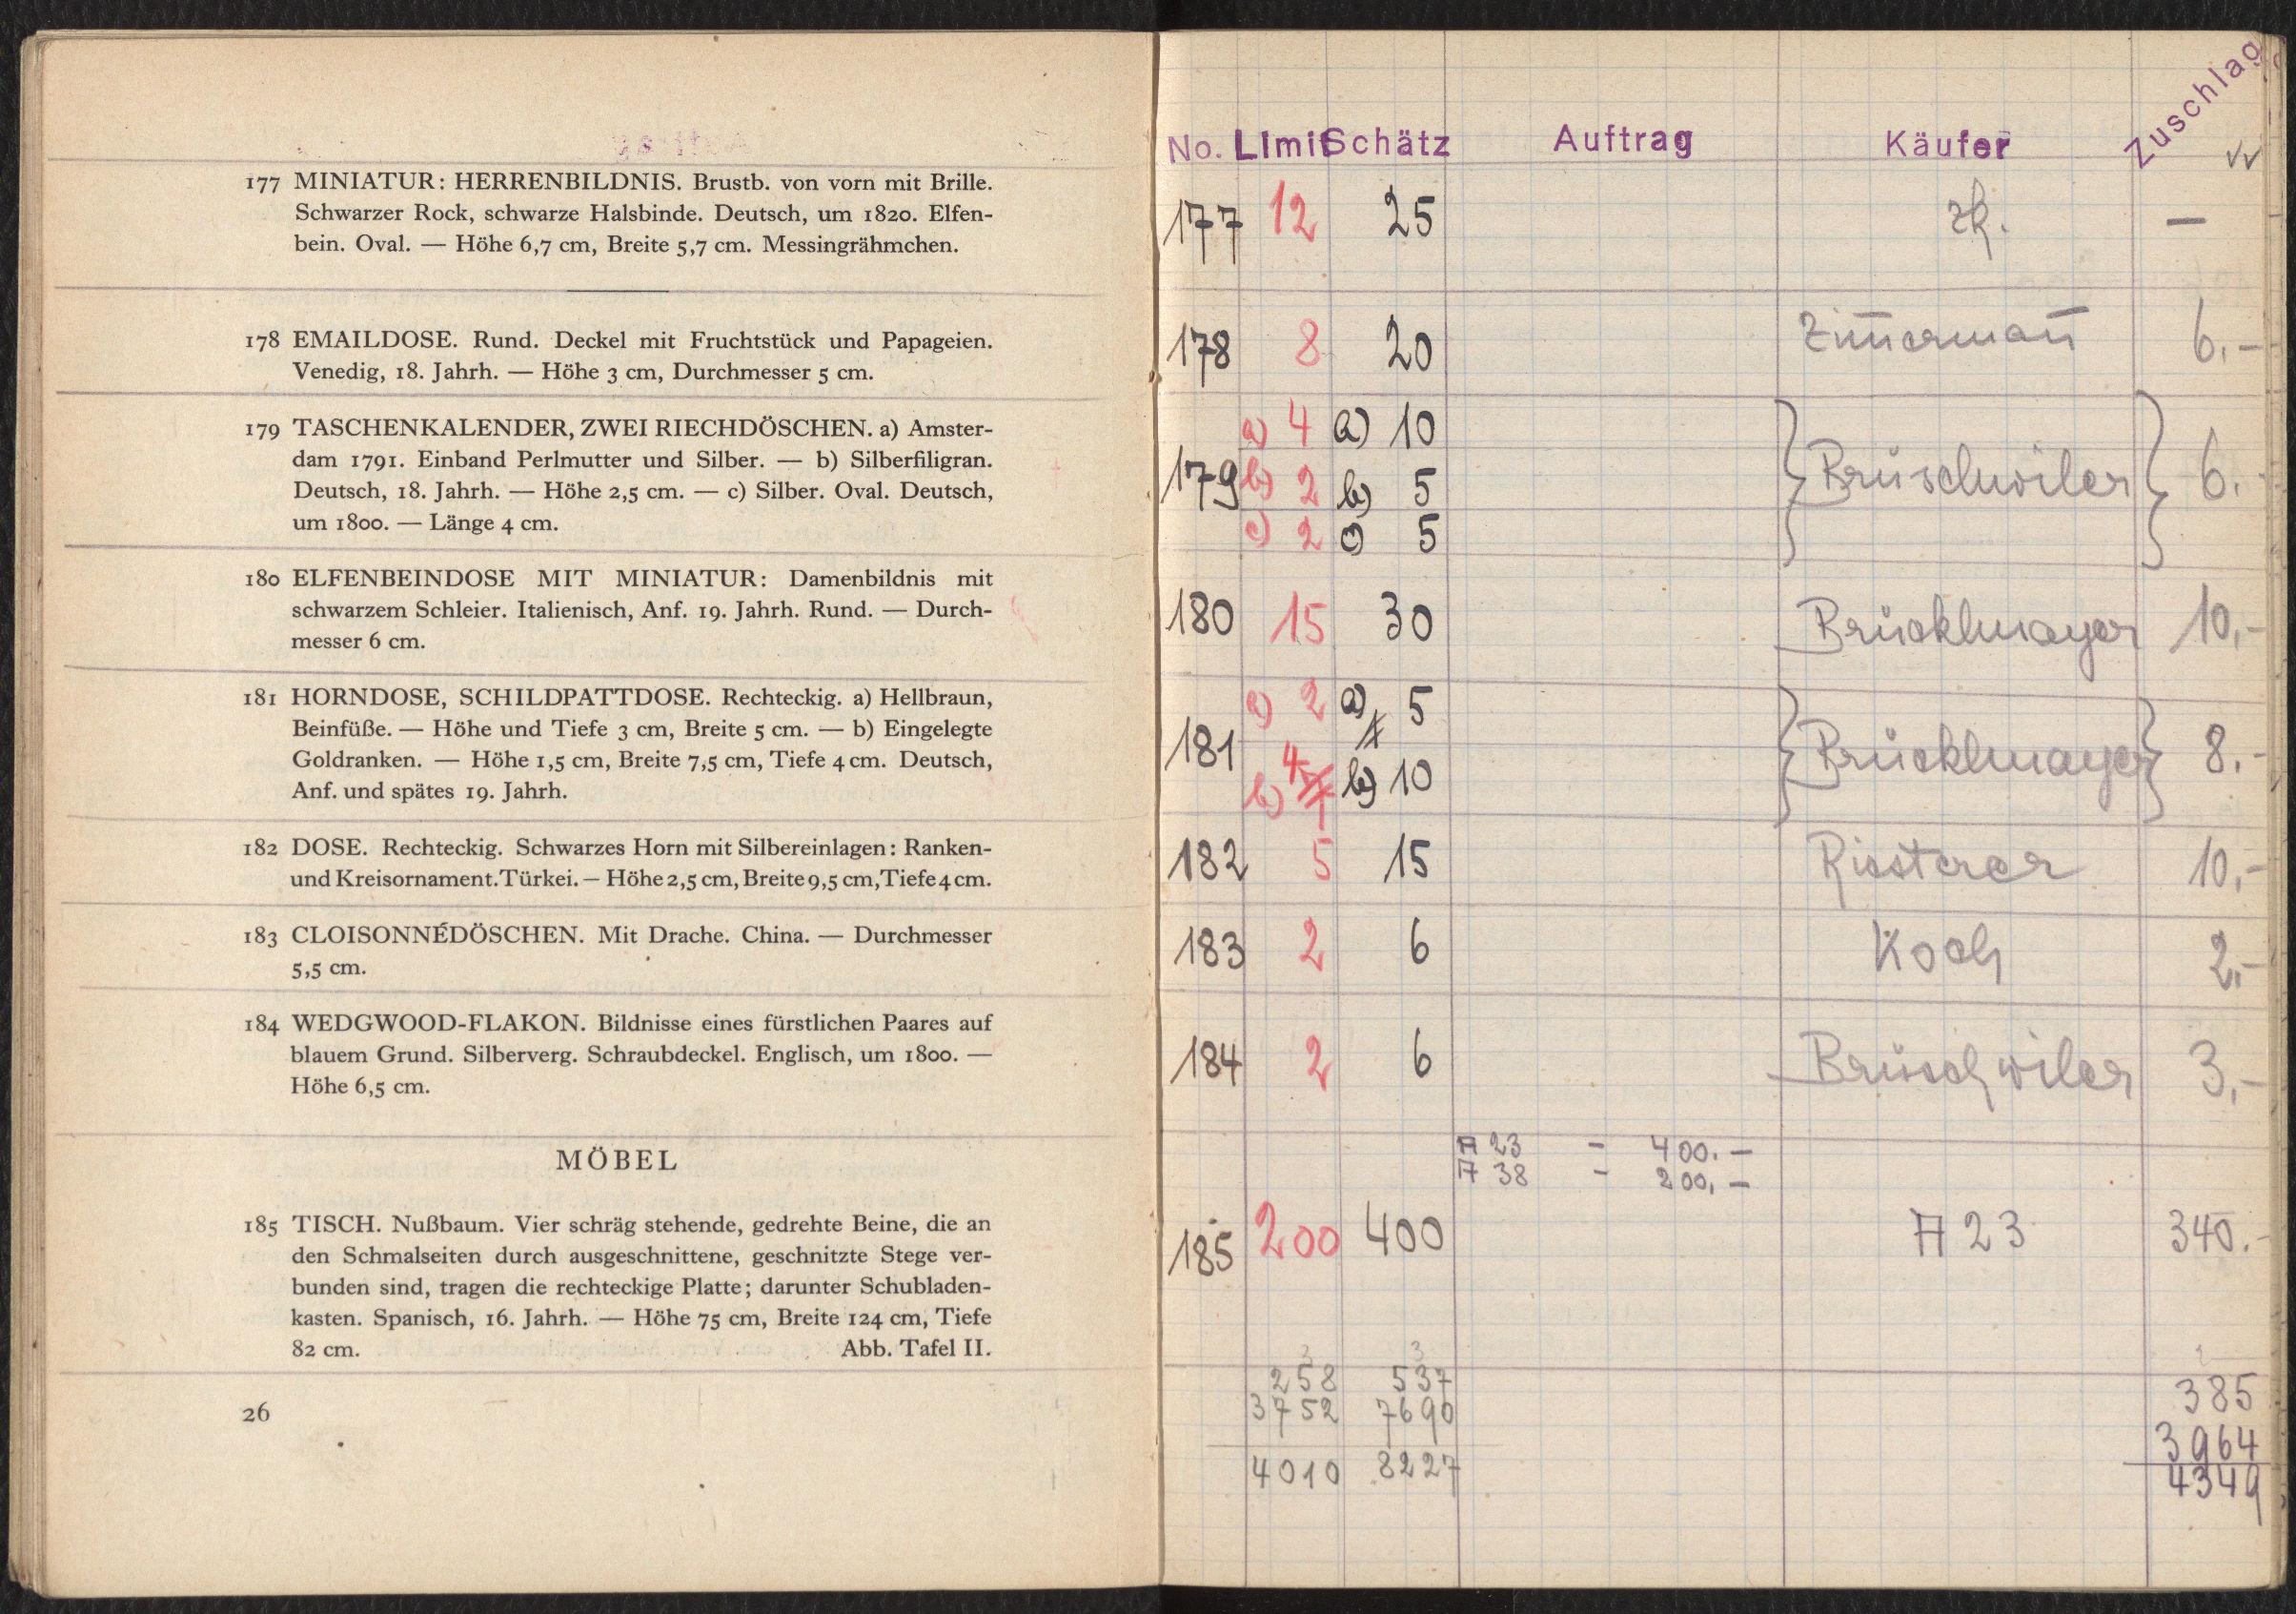 177 MINIATUR: HERRENBILDNIS. Brustb. von vorn mit Brille.
Schwarzer Rock, schwarze Halsbinde. Deutsch, um 1820. Elfen-
bein. Oval. — Höhe 6,7 cm, Breite 5,7 cm. Messingrähmchen.
178 EMAILDOSE. Rund. Deckel mit Fruchtstück und Papageien.
Venedig, 18. Jahrh. — Höhe 3 cm, Durchmesser 5 cm.
179 TASCHENKALENDER, ZWEI RIECHDÖSCHEN. a) Amster-
dam 1791. Einband Perlmutter und Silber. — b) Silberfiligran.
Deutsch, 18. Jahrh. — Höhe 2,5 cm. — c) Silber. Oval. Deutsch,
um 1800. — Länge 4 cm.
180 ELFENBEINDOSE MIT MINIATUR: Damenbildnis mit
schwarzem Schleier. Italienisch, Anf. 19. Jahrh. Rund. — Durch-
messer 6 cm.
181 HORNDOSE, SCHILDPATTDOSE. Rechteckig. a) Hellbraun,
Beinfüße. — Höhe und Tiefe 3 cm, Breite 5 cm. — b) Eingelegte
Goldranken. — Höhe 1,5 cm, Breite 7,5 cm, Tiefe 4 cm. Deutsch,
Anf. und spätes 19. Jahrh.
182 DOSE. Rechteckig. Schwarzes Horn mit Silbereinlagen: Ranken-
und Kreisornament. Türkei. — Höhe 2,5 cm, Breite 9,5 cm, Tiefe 4 cm.
183 CLOISONNÉDÖSCHEN. Mit Drache. China. — Durchmesser
5,5 cm.
184 WEDGWOOD-FLAKON. Bildnisse eines fürstlichen Paares auf
blauem Grund. Silberverg. Schraubdeckel. Englisch, um 1800. —
Höhe 6,5 cm.
MÖBEL
185 TISCH. Nußbaum. Vier schräg stehende, gedrehte Beine, die an
den Schmalseiten durch ausgeschnittene, geschnitzte Stege ver-
bunden sind, tragen die rechteckige Platte; darunter Schubladen-
kasten. Spanisch, 16. Jahrh. — Höhe 75 cm, Breite 124 cm, Tiefe
82 cm. Abb. Tafel II.
26
No. Limit Schätz Auftrag Käufer Zuschlag
177 12 25 zk. —
178 8 20 Zimerman 6.-
a) 4 a) 10
179 b) 2 b) 5 Brüschwiler 6.
c) 2 c) 5
180 15 30 Brücklmayer 10,-
a) 2 a) 5
181 Brücklmayer 8.-
b) 4 b) 10
182 5 15 10,-
183 2 6 Koch 2,-
184 2 6 Brüschwiler 3,-
A 23 - 400.—
A 38 - 200,—
185 200 400 A 23 340.-
258 537 385
3752 7690 3964
4010 8227 4349